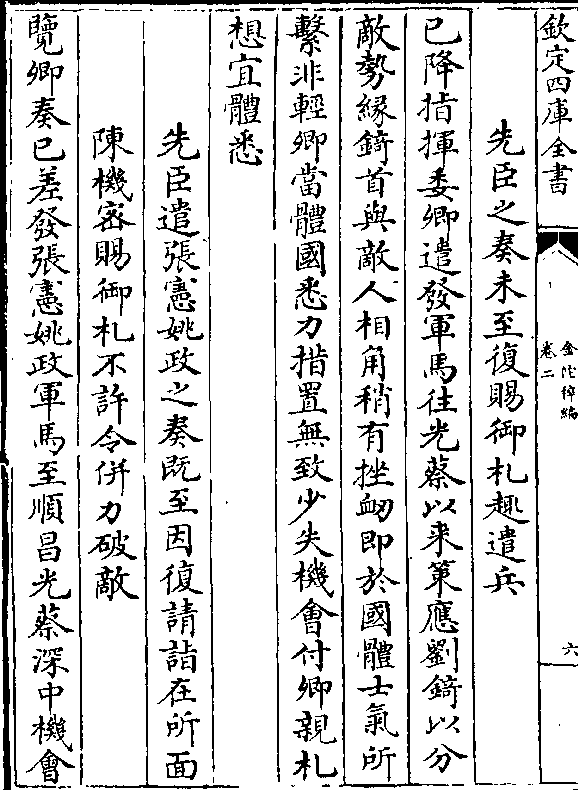 欽定四庫全書
金佗稡編
卷二
六
先臣之奏未至復賜御札趣遣兵
已降指揮委卿遣發軍馬往光蔡以來策應劉錡以分
敵勢緣錡首與敵人相角稍有挫衂即於國體士氣所
繫非輕卿當體國悉力措置無致少失機會付卿親札
想宜體悉
先臣遣張憲姚政之奏既至因復請詣在所面
陳機密賜御札不許令併力破敵
覽卿奏已差發張憲姚政軍馬至順昌光蔡深中機會